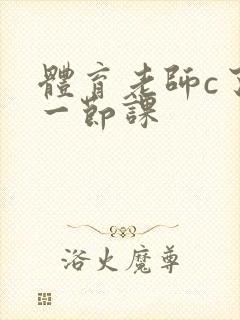 體育老師c了
一節課
浴火魔尊